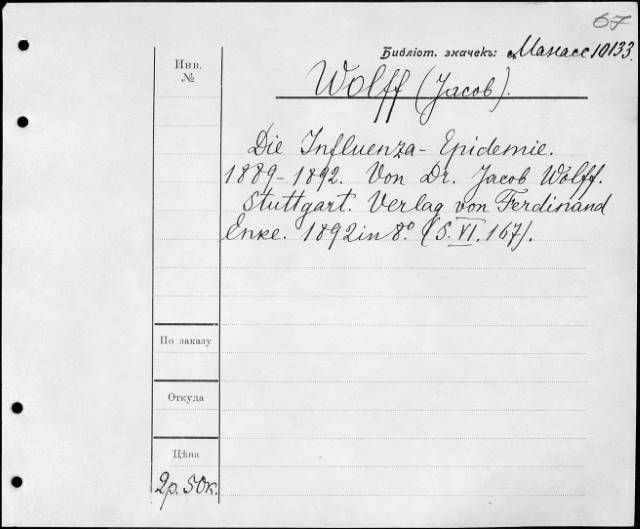 67
Библіот. значекъ: Манасс 10133.
Инв.
№
Wolff (Jacob).
Die Influenza-Epidemie.
1889-1892. Von Dr. Jacob Wolff.
Stuttgart. Verlag von Ferdinand
Enke. 1892 in 8º. (S. VI. 167).
По заказу
Откуда
Цѣна
2р. 50к.